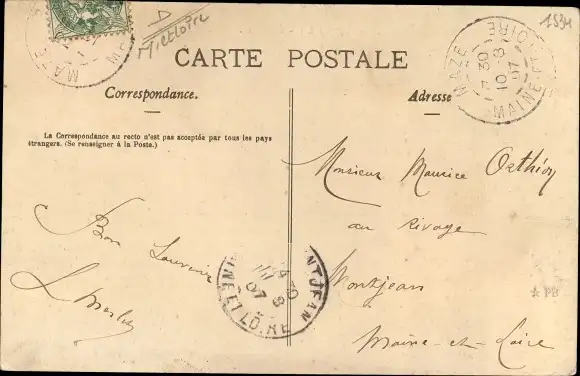 D
M et Loire
1534
MAZE
MAZE
MAINE-ET-LOIRE
7 30
10 -8
07
CARTE POSTALE
Correspondance.
Adresse
La Correspondance au recto n'est pas acceptée par tous les pays
étrangers. (Se renseigner à la Poste.)
Monsieur Maurice
au Rivage
Montjean
Maine-et-Loire
Bon Souvenir
MONTJEAN
MAINE ET LOIRE
07
PB